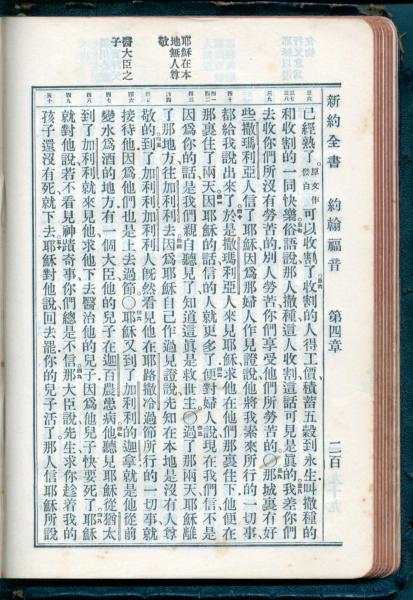 新約全書 約翰福音 第四章 二百
耶穌在本
地無人尊
敬
醫大臣之
子
已經熟了原文作發白可以收割了收割的人得工價積蓄五穀到永生叫撒種的
和收割的一同快樂俗語說那人撒種這人收割這話可見是眞的我差你們
去收你們所沒有勞苦的別人勞苦你們享受他們所勞苦的○那城裏有好
些撒瑪利亞人信了耶穌因爲那婦人作見證說他將我素來所行的一切事
都給我說出來了於是撒瑪利亞人來見耶穌求他在他們那裏住下他便在
那裏住了兩天因耶穌的話信的人就更多了便對婦人說現在我們信不是
因爲你的話是我們親自聽見了知道這眞是救世主○過了那兩天耶穌離
了那地方往加利利去因爲耶穌自己作過見證說先知在本地是沒有人尊
敬的到了加利利加利利人旣然看見他在耶路撒冷過節所行的一切事就
接待他因爲他們也是上去過節○耶穌又到了加利利的迦拿就是他從前
變水爲酒的地方有一個大臣他的兒子在迦百農患病他聽見耶穌從猶太
到了加利利就來見他求他下去醫治他的兒子因爲他兒子快要死了耶穌
就對他說若不看見神蹟奇事你們總是不信那大臣說先生求你趁着我的
孩子還沒有死就下去耶穌對他說回去罷你的兒子活了那人信耶穌所說